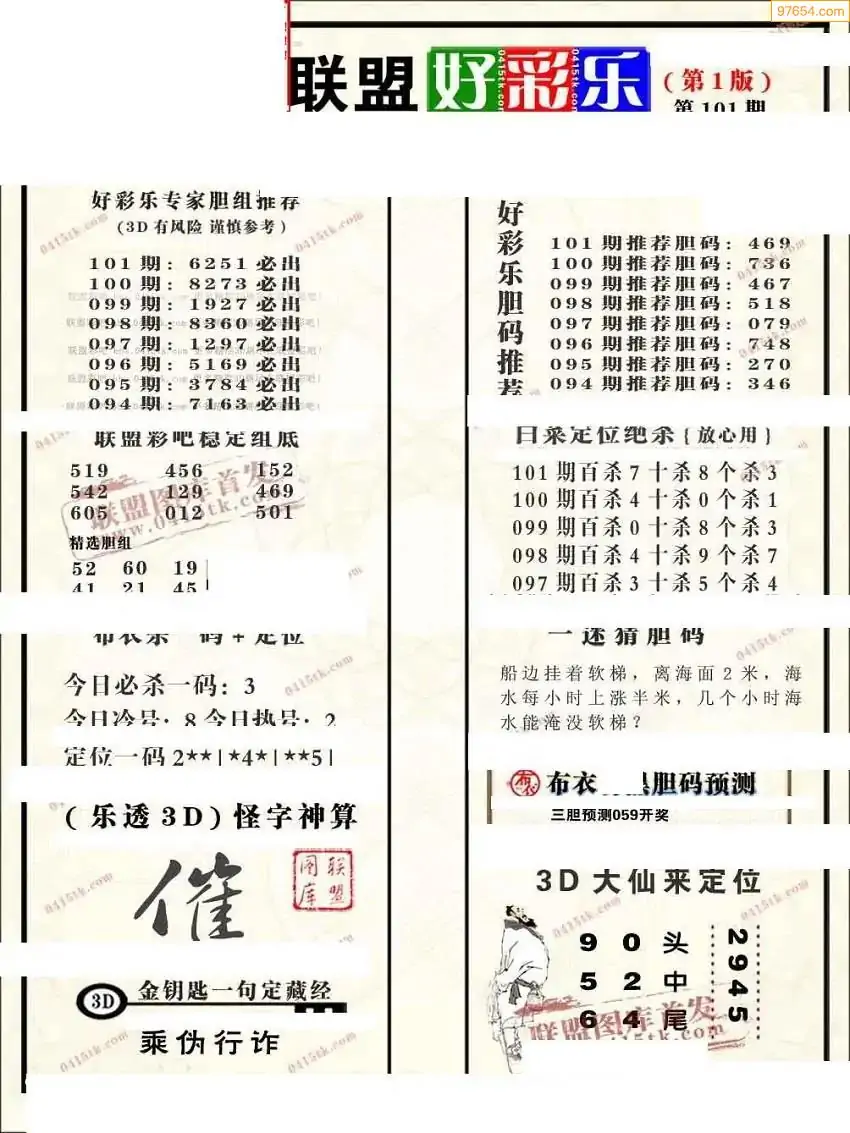 97654.com
联盟好彩乐
(第1版)
第101期
好彩乐专家胆组推荐
(3D有风险 谨慎参考)
101期: 6251必出
100期: 8273必出
099期: 1927必出
098期: 8360必出
097期: 1297必出
096期: 5169必出
095期: 3784必出
094期: 7163必出
联盟彩吧稳定组底
519 456 152
542 129 469
605 012 501
精选胆组
52 60 19
41 21 45
布衣杀一码+定位
今日必杀一码: 3
今日冷号: 8 今日热号: 2
定位一码 2**|*4*|**5|
(乐透3D)怪字神算
催
联盟图库
3D
金钥匙一句定藏经
乘伪行诈
好彩乐胆码推荐
101期推荐胆码: 469
100期推荐胆码: 736
099期推荐胆码: 467
098期推荐胆码: 518
097期推荐胆码: 079
096期推荐胆码: 748
095期推荐胆码: 270
094期推荐胆码: 346
白菜定位绝杀{放心用}
101期百杀7十杀8个杀3
100期百杀4十杀0个杀1
099期百杀0十杀8个杀3
098期百杀4十杀9个杀7
097期百杀3十杀5个杀4
一迷猜胆码
船边挂着软梯，离海面2米，海
水每小时上涨半米，几个小时海
水能淹没软梯？
布衣
胆码预测
三胆预测059开奖
3D大仙来定位
9 0 头
5 2 中
6 4 尾
2945
联盟图库首发
www.0415tk.com
0415tk.com